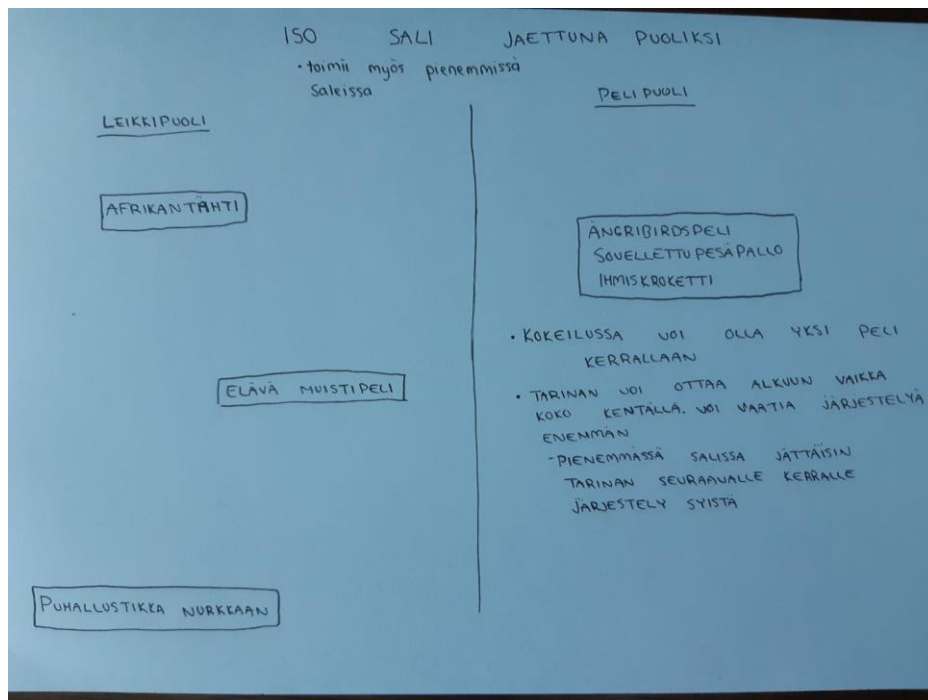 ISO SALI JAETTUNA PUOLIKSI
• toimii myös pienemmissä
saleissa
LEIKKIPUOLI
AFRIKANTÄHTI
ELÄVÄ MUISTIPELI
PUHALLUSTIKKA NURKKAAN
PELIPUOLI
ÄNGRIBIRDSPELI
SOVELLETTU PESÄPALLO
IHMISKROKETTI
• KOKEILUSSA VOI OLLA YKSI PELI
KERRALLAAN
• TARINAN VOI OTTAA ALKUUN VAIKKA
KOKO KENTÄLLÄ. VOI VAATIA JÄRJESTELYÄ
ENEMMÄN
- PIENEMMÄSSÄ SALISSA JÄTTÄISIN
TARINAN SEURAAVALLE KERRALLE
JÄRJESTELY SYISTÄ